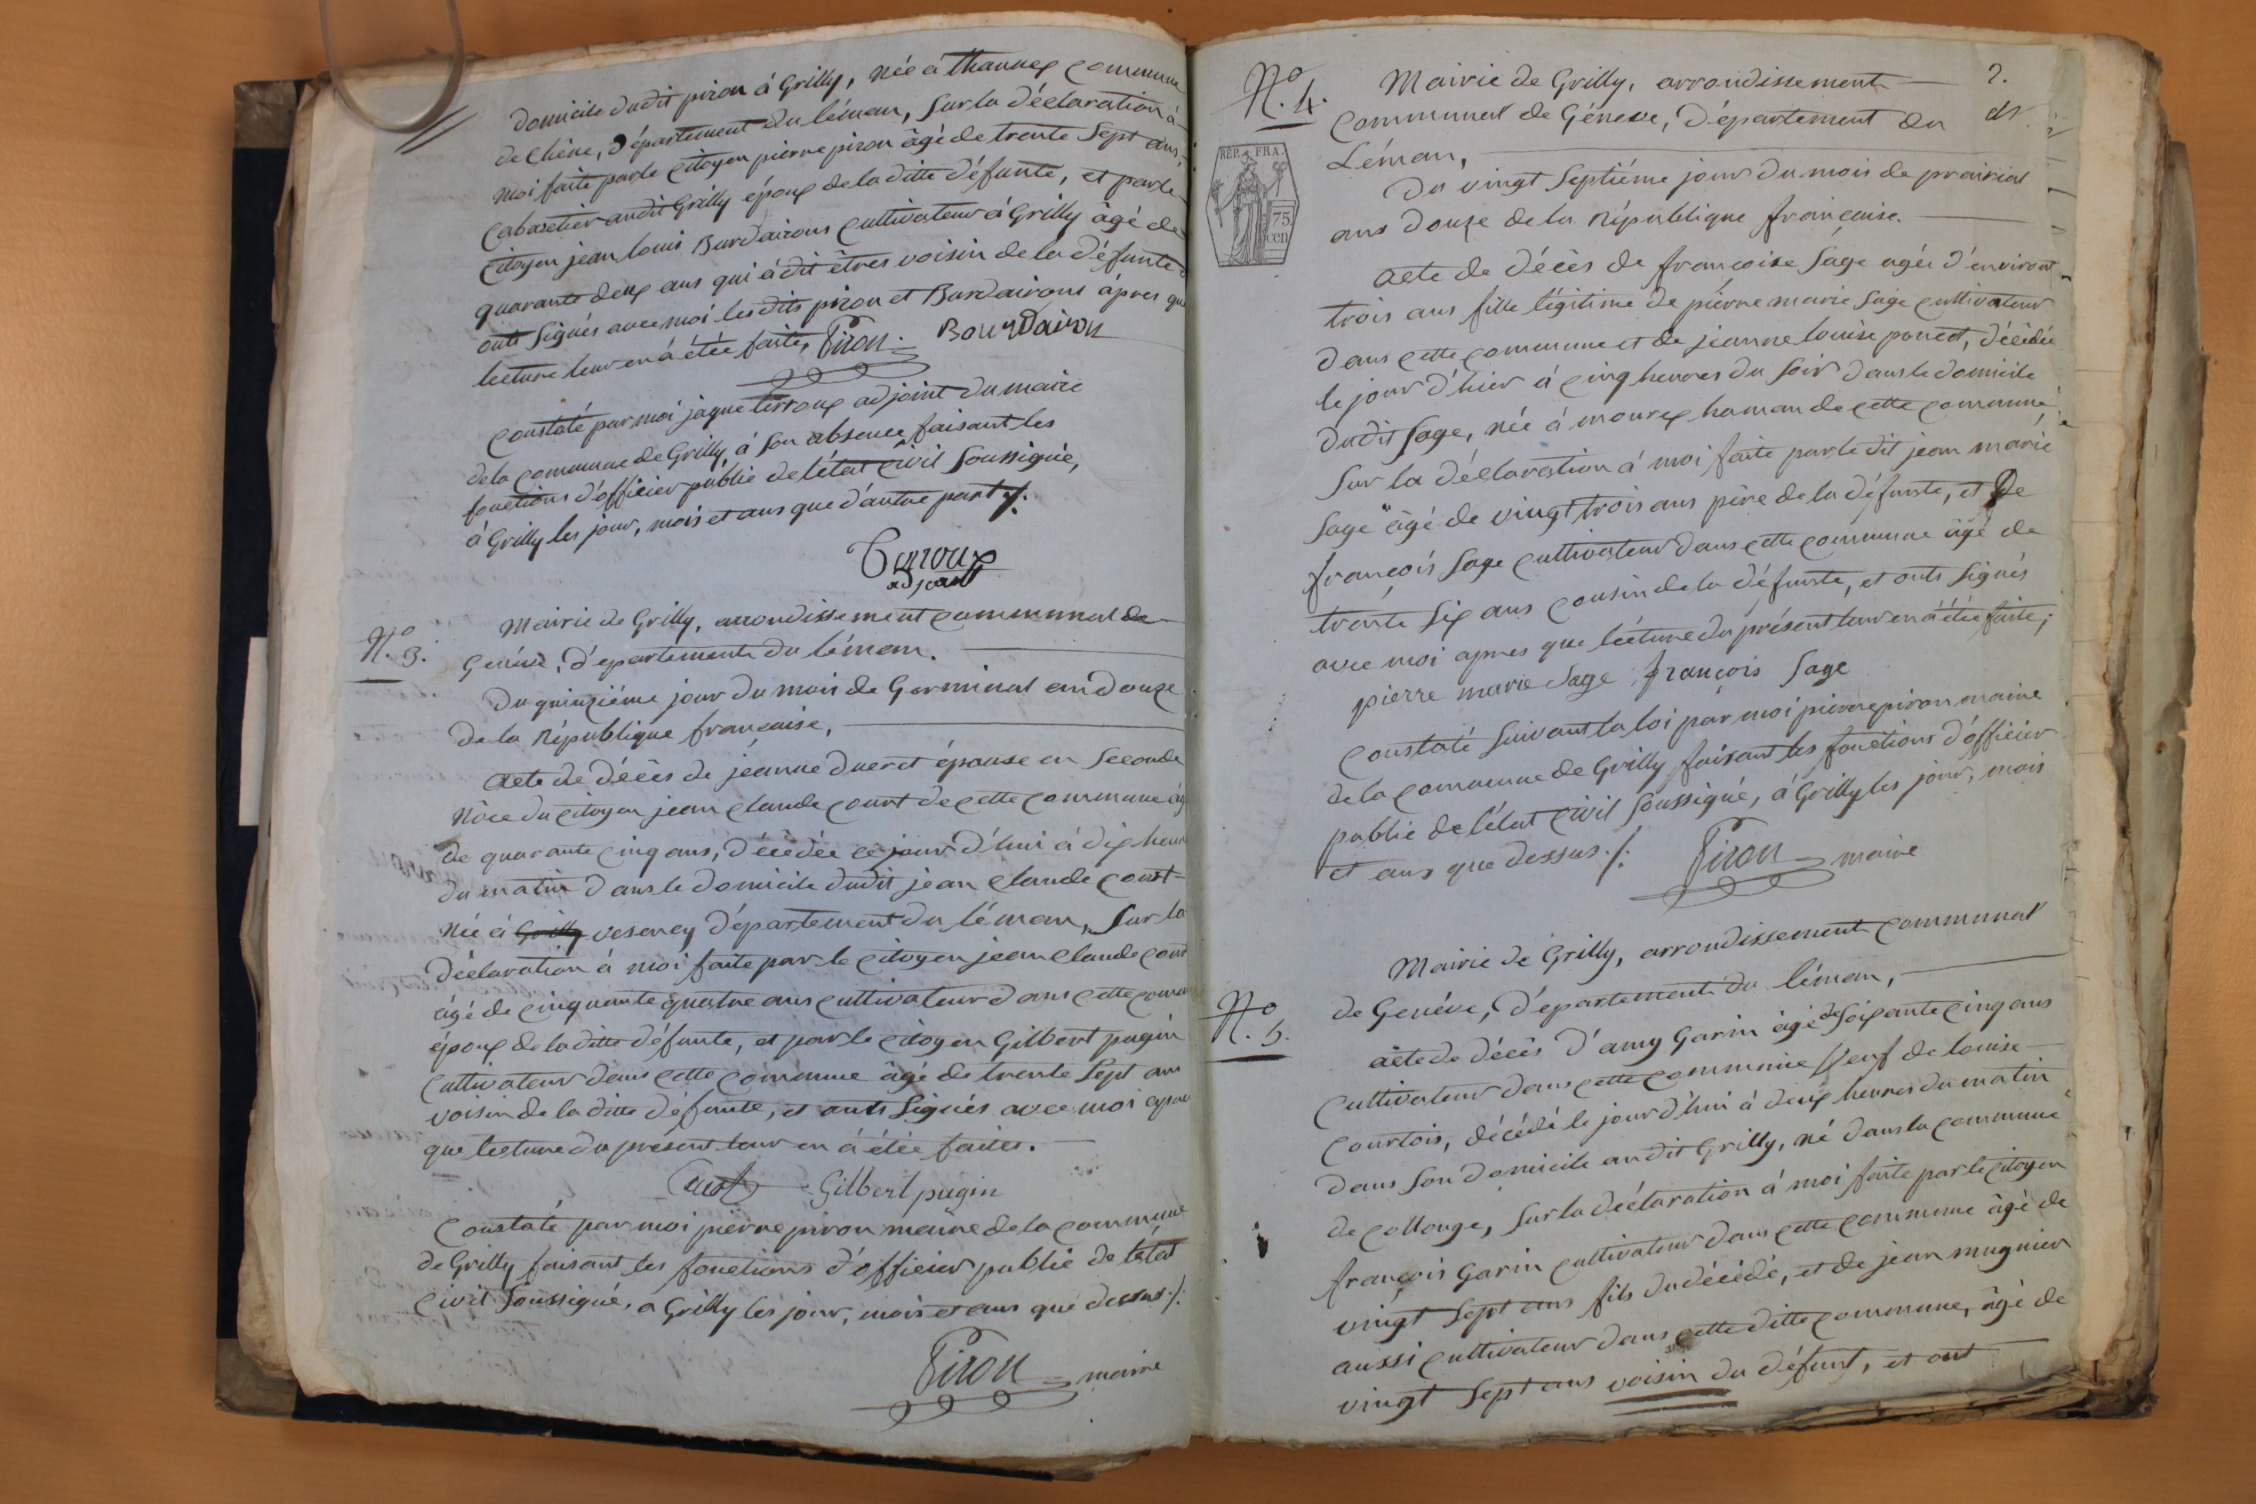 domicile dudit piron à Grilly, née à thannex commune
de Chêne, département du léman, sur la déclaration à
moi faite par le citoyen pierre piron âgé de trente sept ans,
cabaretier audit Grilly époux de la ditte défunte, et par le
citoyen jean louis Burdairons cultivateur à Grilly âgé de
quarante deux ans qui à dit êtres voisin de la défunte
onts signés avec moi lesdits piron et Burdairons âpres que
lecture leur en à étée faite, Piron. Bourdairon
constaté par moi jaque terroux adjoint du maire
de la commune de Grilly, à son absence faisant les
fonctions d'officier public de l'état civil soussigné,
à Grilly les jour, mois et ans que d'autre part ./.
Terroux
adjoint
No. 3.
Mairie de Grilly, arrondissement communal de
Genève, département du léman.
Du quinziéme jour du mois de Germinal an douze
de la République francaise,
Acte de décès de jeanne ducret épouse en seconde
Nôce du citoyen jean claude court de cette commune âg
de quarante cinq ans, décédée ce jour d'hui à dix heur
du matin dans le domicile dudit jean claude court
née à Grilly vesency département du léman, sur la
déclaration à moi faite par le citoyen jean claude cour
âgé de cinquante quatre ans cultivateur dans cette comm
époux de la ditte défunte, et par le citoyen Gilbert pugin
cultivateur dans cette commune âgé de trente sept ans
voisin de la ditte défunte, et onts signés avec moi apres
que lecture du présent leur en à étée faites.
Court Gilbert pugin
Constaté par moi pierre piron maire de la commune
de Grilly faisant les fonctions d'officier public de l'état
civil soussigné, à Grilly les jour, mois et ans que dessus ./.
Piron maire
No. 4.
2.
Mairie de Grilly, arrondissement
communal de Géneve, Département du
Léman,
REP. FRA.
75
cen
Du vingt septiéme jour du mois de prairial
ans douze de la République française.
Acte de décès de françoise sage agée d'environt
trois ans fille légitime de pierre marie sage cultivateur
dans cette commune et de jeanne louise poncet, décédée
le jour d'hier à cinq heures du soir dans le domicile
dudit sage, née à mourex hamau de cette commune,
sur la déclaration à moi faite par le dit jean marie
sage âgé de vingt trois ans père de la défunte, et De
françois sage cultivateur dans cette commune âgé de
trente six ans cousin de la défunte, et onts signés
avec moi apres que lécture du présent leur en à étée faite;
pierre marie sage françois sage
constaté suivant la loi par moi pierre piron maire
de la commune de Grilly faisant les fonctions d'officier
public de l'état civil soussigné, à Grilly les jour, mois
et ans que dessus ./. Piron maire
No. 5.
Mairie de Grilly, arrondissement communal
de Genève, département du léman,
acte de décès d'amy Garin âgé de soixante cinq ans
cultivateur dans cette commune veuf de louise
courtois, décédé le jour d'hui à deux heures du matin
dans son domicile audit Grilly, né dans la commune
de collonge, sur la déclaration à moi faite par le citoyen
françois Garin cultivateur dans cette commune âgé de
vingt sept ans fils du décédé, et de jean mugnier
aussi cultivateur dans cette ditte commune, âgé de
vingt sept ans voisin du défunt, et ont